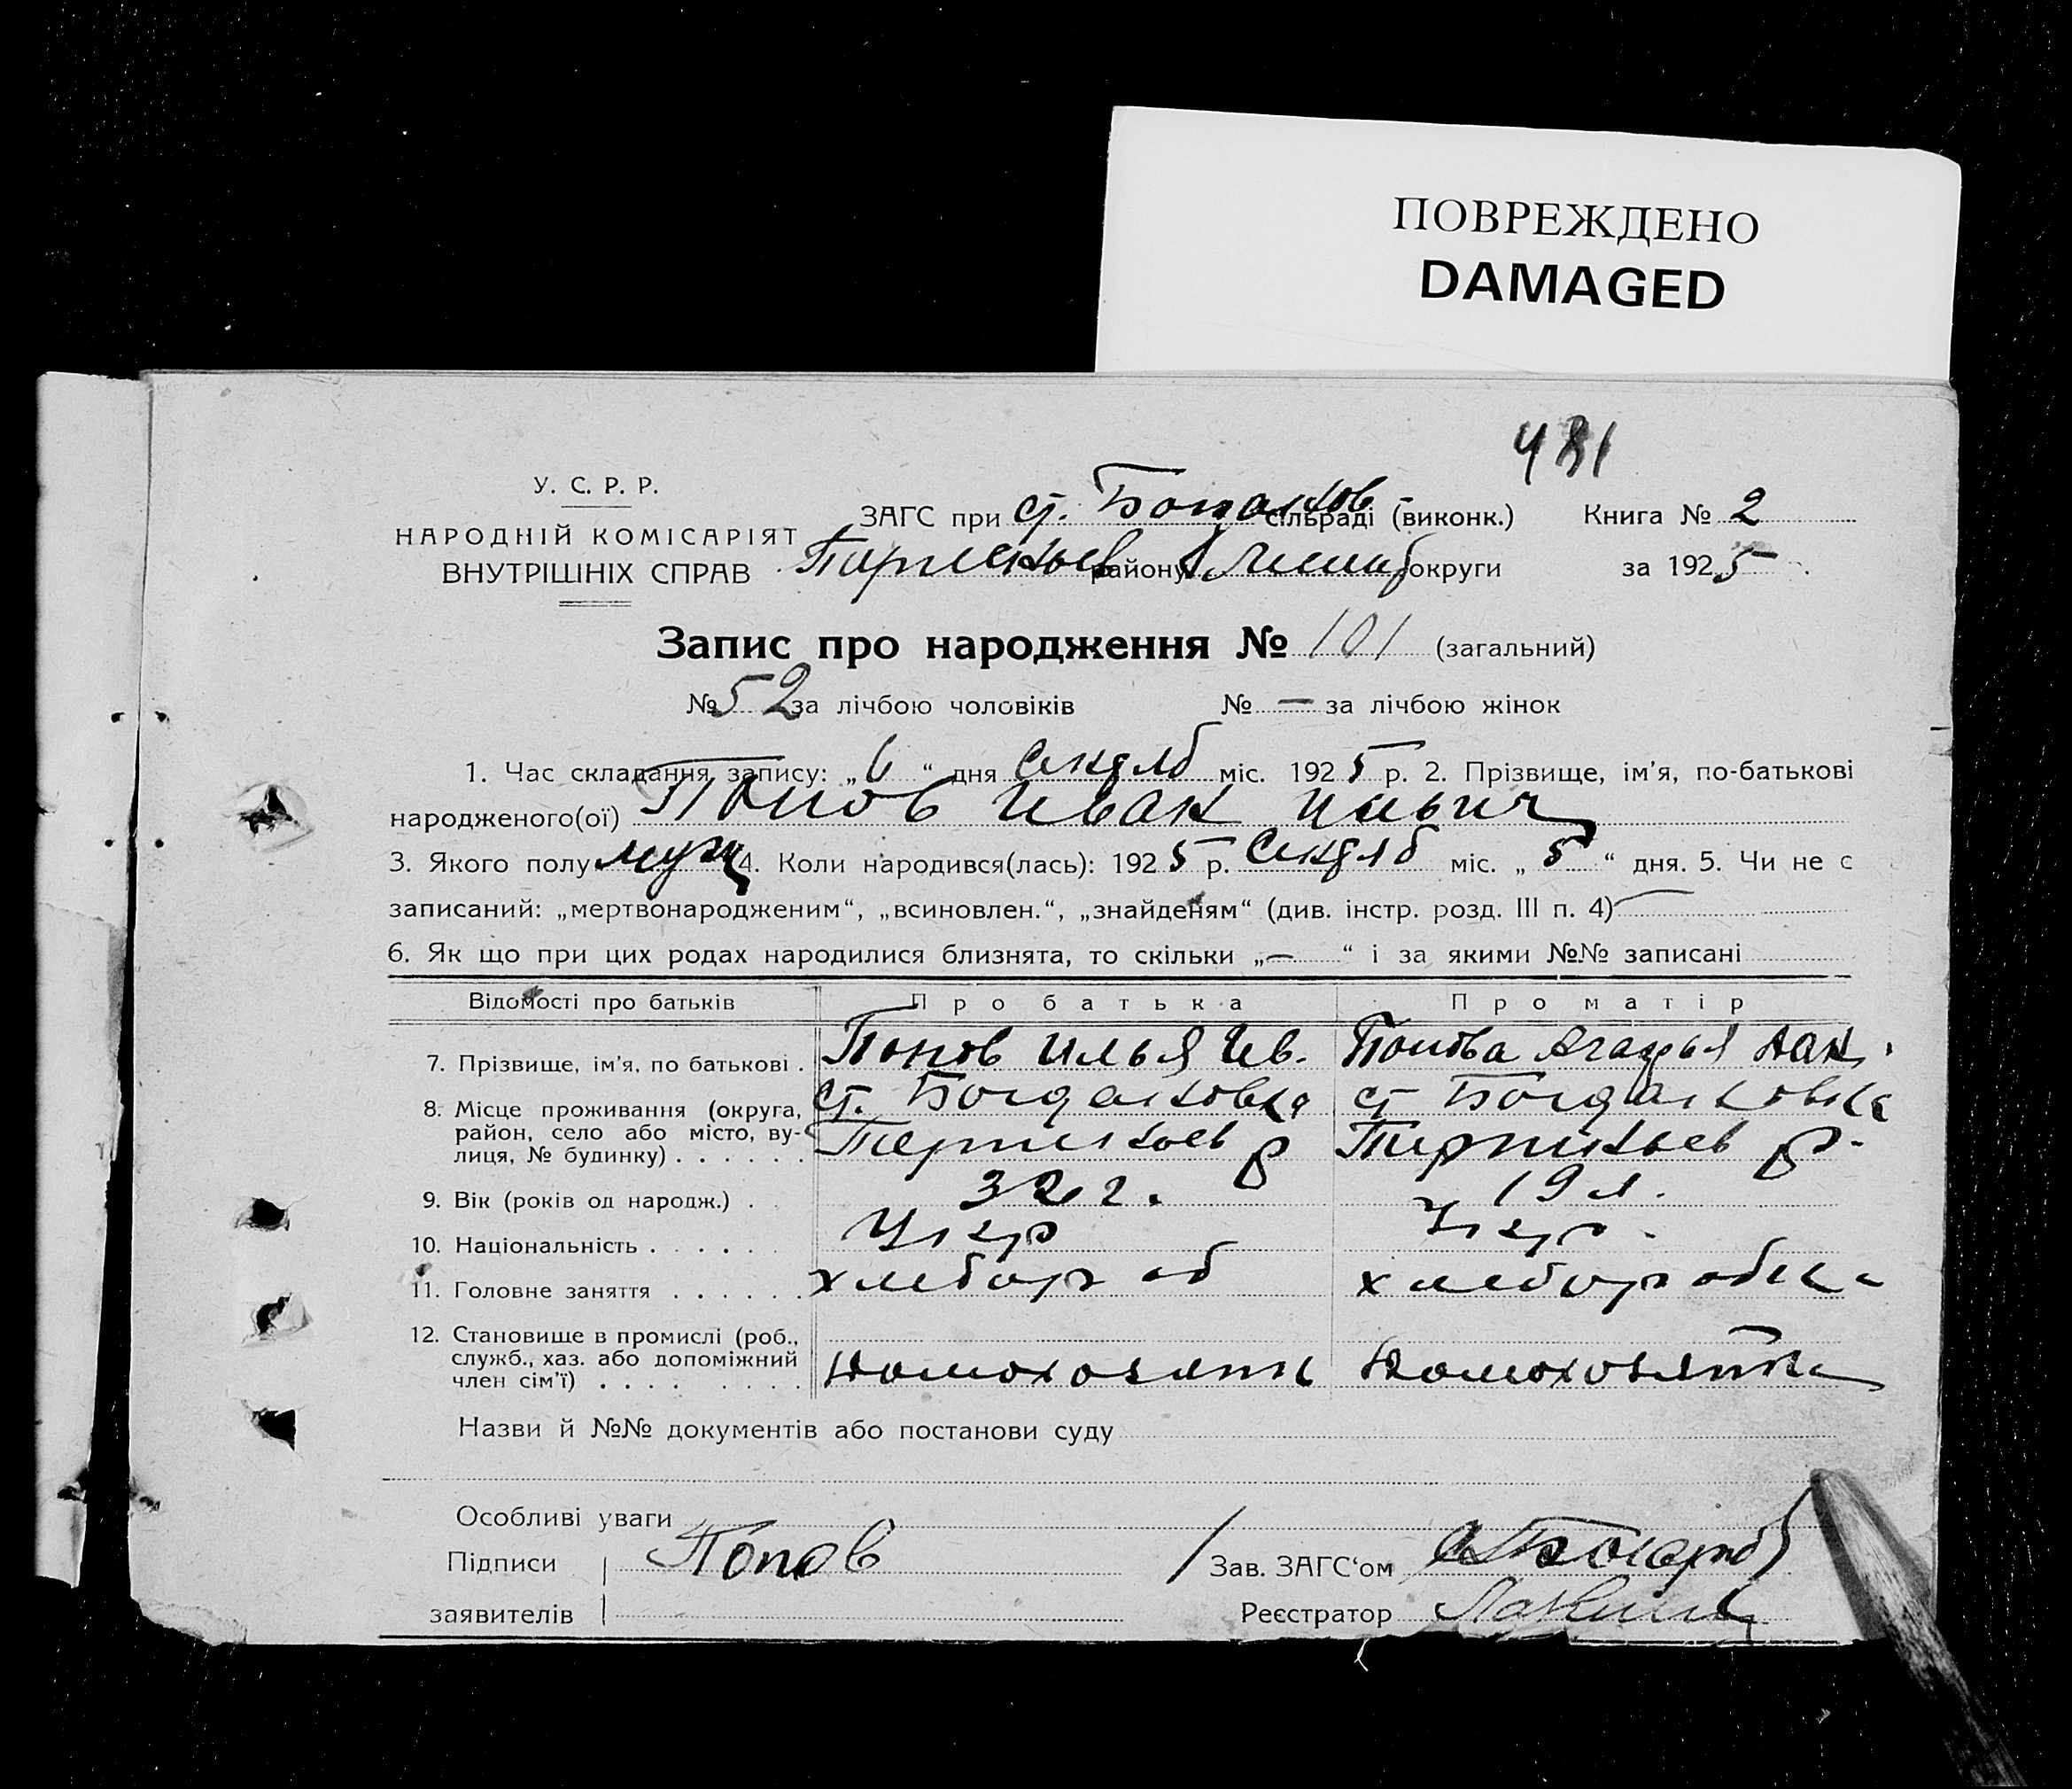 ПОВРЕЖДЕНО
DAMAGED
481
У. С. Р. Р.
НАРОДНІЙ КОМІСАРІЯТ
ВНУТРІШНІХ СПРАВ
ЗАГС при ст. сільраді (виконк.) Книга № 2
району округи за 1925
Запис про народження № 101 (загальний)
№ 52 за лічбою чоловіків № — за лічбою жінок
1. Час складання запису: „6“ дня міс. 1925 р. 2. Прізвище, ім’я, по-батькові
народженого(ої) Попов Иван Ильич
3. Якого полу муж 4. Коли народився(лась): 1925 р. міс. „5“ дня. 5. Чи не є
записаний: „мертвонародженим“, „всиновлен.“, „знайденям“ (див. інстр. розд. III п. 4)
6. Як що при цих родах народилися близнята, то скільки „—“ і за якими №№ записані
Відомості про батьків Про батька Про матір
7. Прізвище, ім’я, по батькові . Попов Илья Ив. Попова Агафья
8. Місце проживання (округа, ст. Богдановка ст Богдановка
район, село або місто, ву-
лиця, № будинку) . . . . . . р р.
9. Вік (років од народж.) . . 32 г. 19 л.
10. Національність . . . . . . Укр Укр.
11. Головне заняття . . . . . . хлебороб хлеборобка
12. Становище в промислі (роб.,
служб., хаз. або допоміжний
член сім’ї) . . . . . . . .
Назви й №№ документів або постанови суду
Особливі уваги
Підписи Попов Зав. ЗАГС‘ом
заявителів Реєстратор